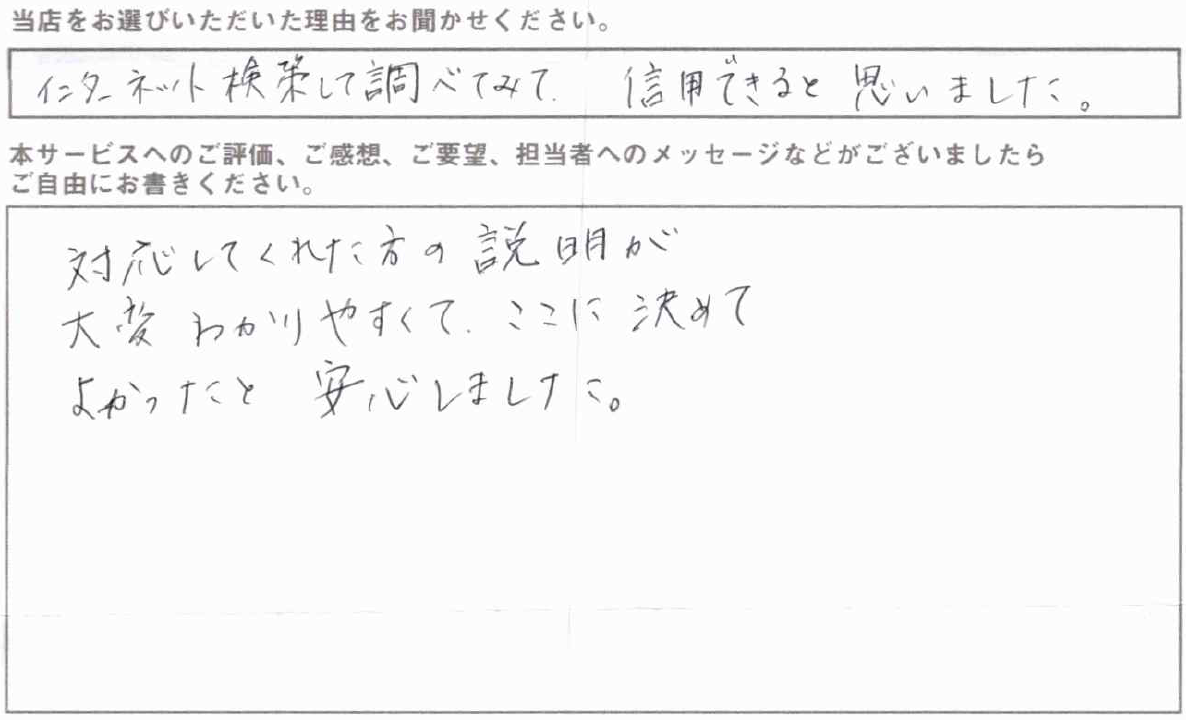 当店をお選びいただいた理由をお聞かせください。
インターネット検索して調べてみて、信用できると思いました。
本サービスへのご評価、ご感想、ご要望、担当者へのメッセージなどがございましたら
ご自由にお書きください。
対応してくれた方の説明が
大変わかりやすくて、ここに決めて
よかったと安心しました。